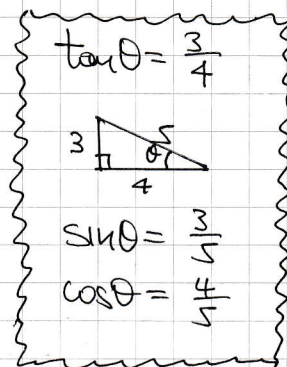 tanθ = 3/4
3
5
θ
4
sinθ = 3/5
cosθ = 4/5